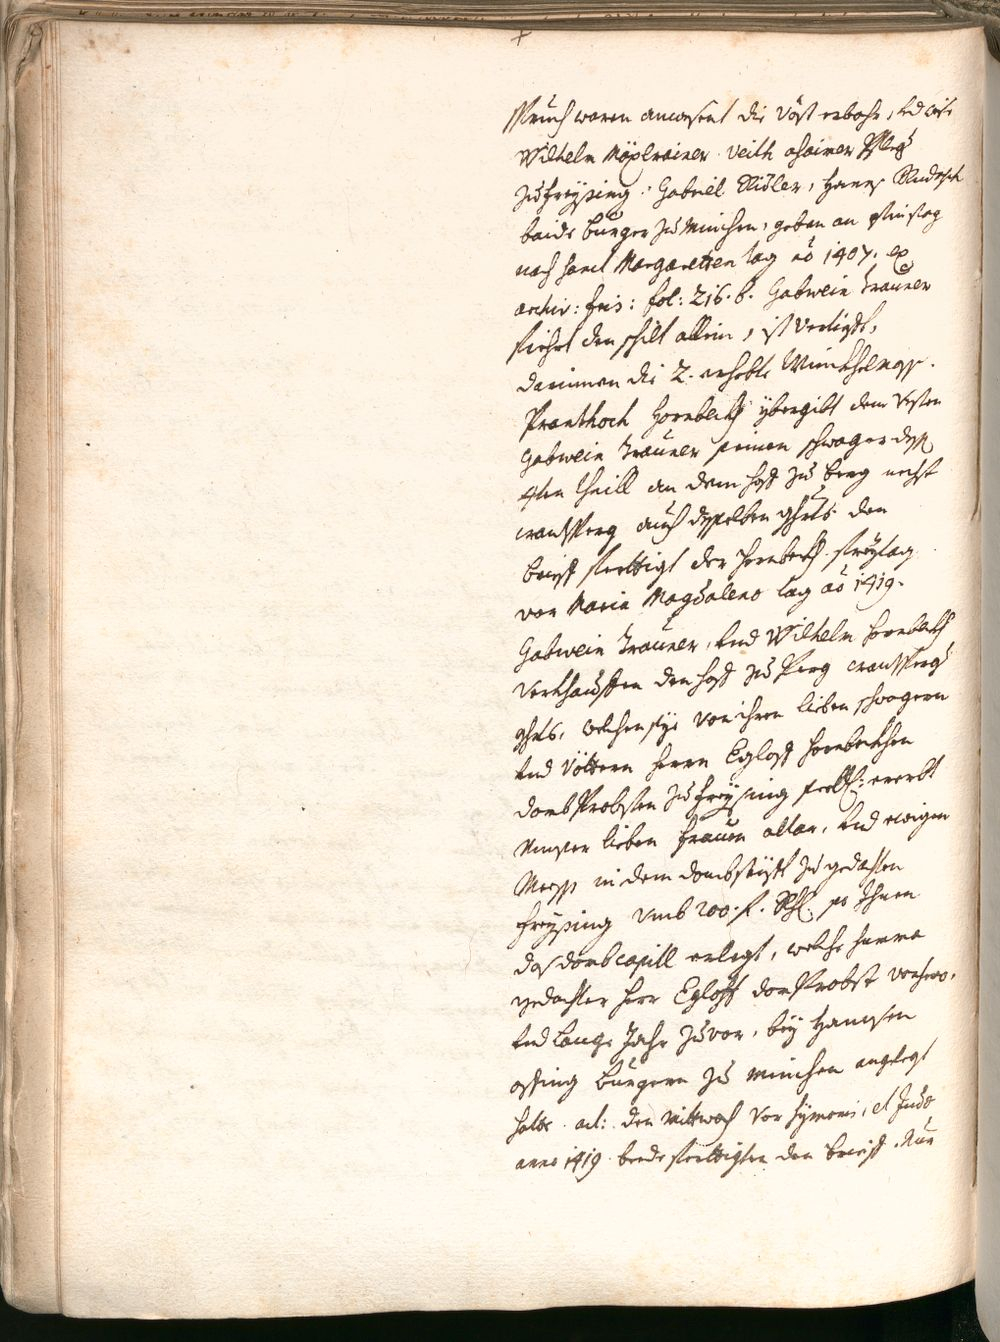 +
spruch waren anwesent die Vöst erbahr, und weise
Wilhelm Mäxlrainer Veith ahaimer Pfleg
zu freysing. Gabriel Ridler, Hanns Rudolph
baide burger zu München, geben an Pfinstag
nach sanct Margaretten tag ao 1407. ex
archiv: freis: fol: 216. b. Gabwein Trauner
siehrt den schilt allein, ist verligkt,
darinnen die 2. erhebte Winckhelmess.
Pranthoch hornbeckh ybergibt dem Vesten
Gabwein Trauner seinen schwager dess
4ten theill an dem hoff zu berg nechst
crantsperg auch desselben ghrts. den
brieff ferttigt der hornbeckh freytag
vor Maria Magdalena tag ao 1419.
Gabwein Trauner, und Wilhelm hornbeckh
verkhaufften den hoff zu Perg crantsperg
ghrts, welchen sye von ihren lieben schwagern
und Vöttern herrn Egloff hornbeckhen
dombProbsten zu freysing seel: ererbt
Unser lieben frauen altar, und ewigen
Mess in dem dombstifft zu gedachten
freysing umb 200. f. so Ihnen
das dombcapitl erlegt, welche summa
gedachter herr Egloff domProbst
und lange Jahr zuvor, bey Hannsen
burgern zu München angelegt
hatte. act: den Mittwoch vor Symoni, et Judæ
anno 1419 beede ferttigten den brieff. Nun